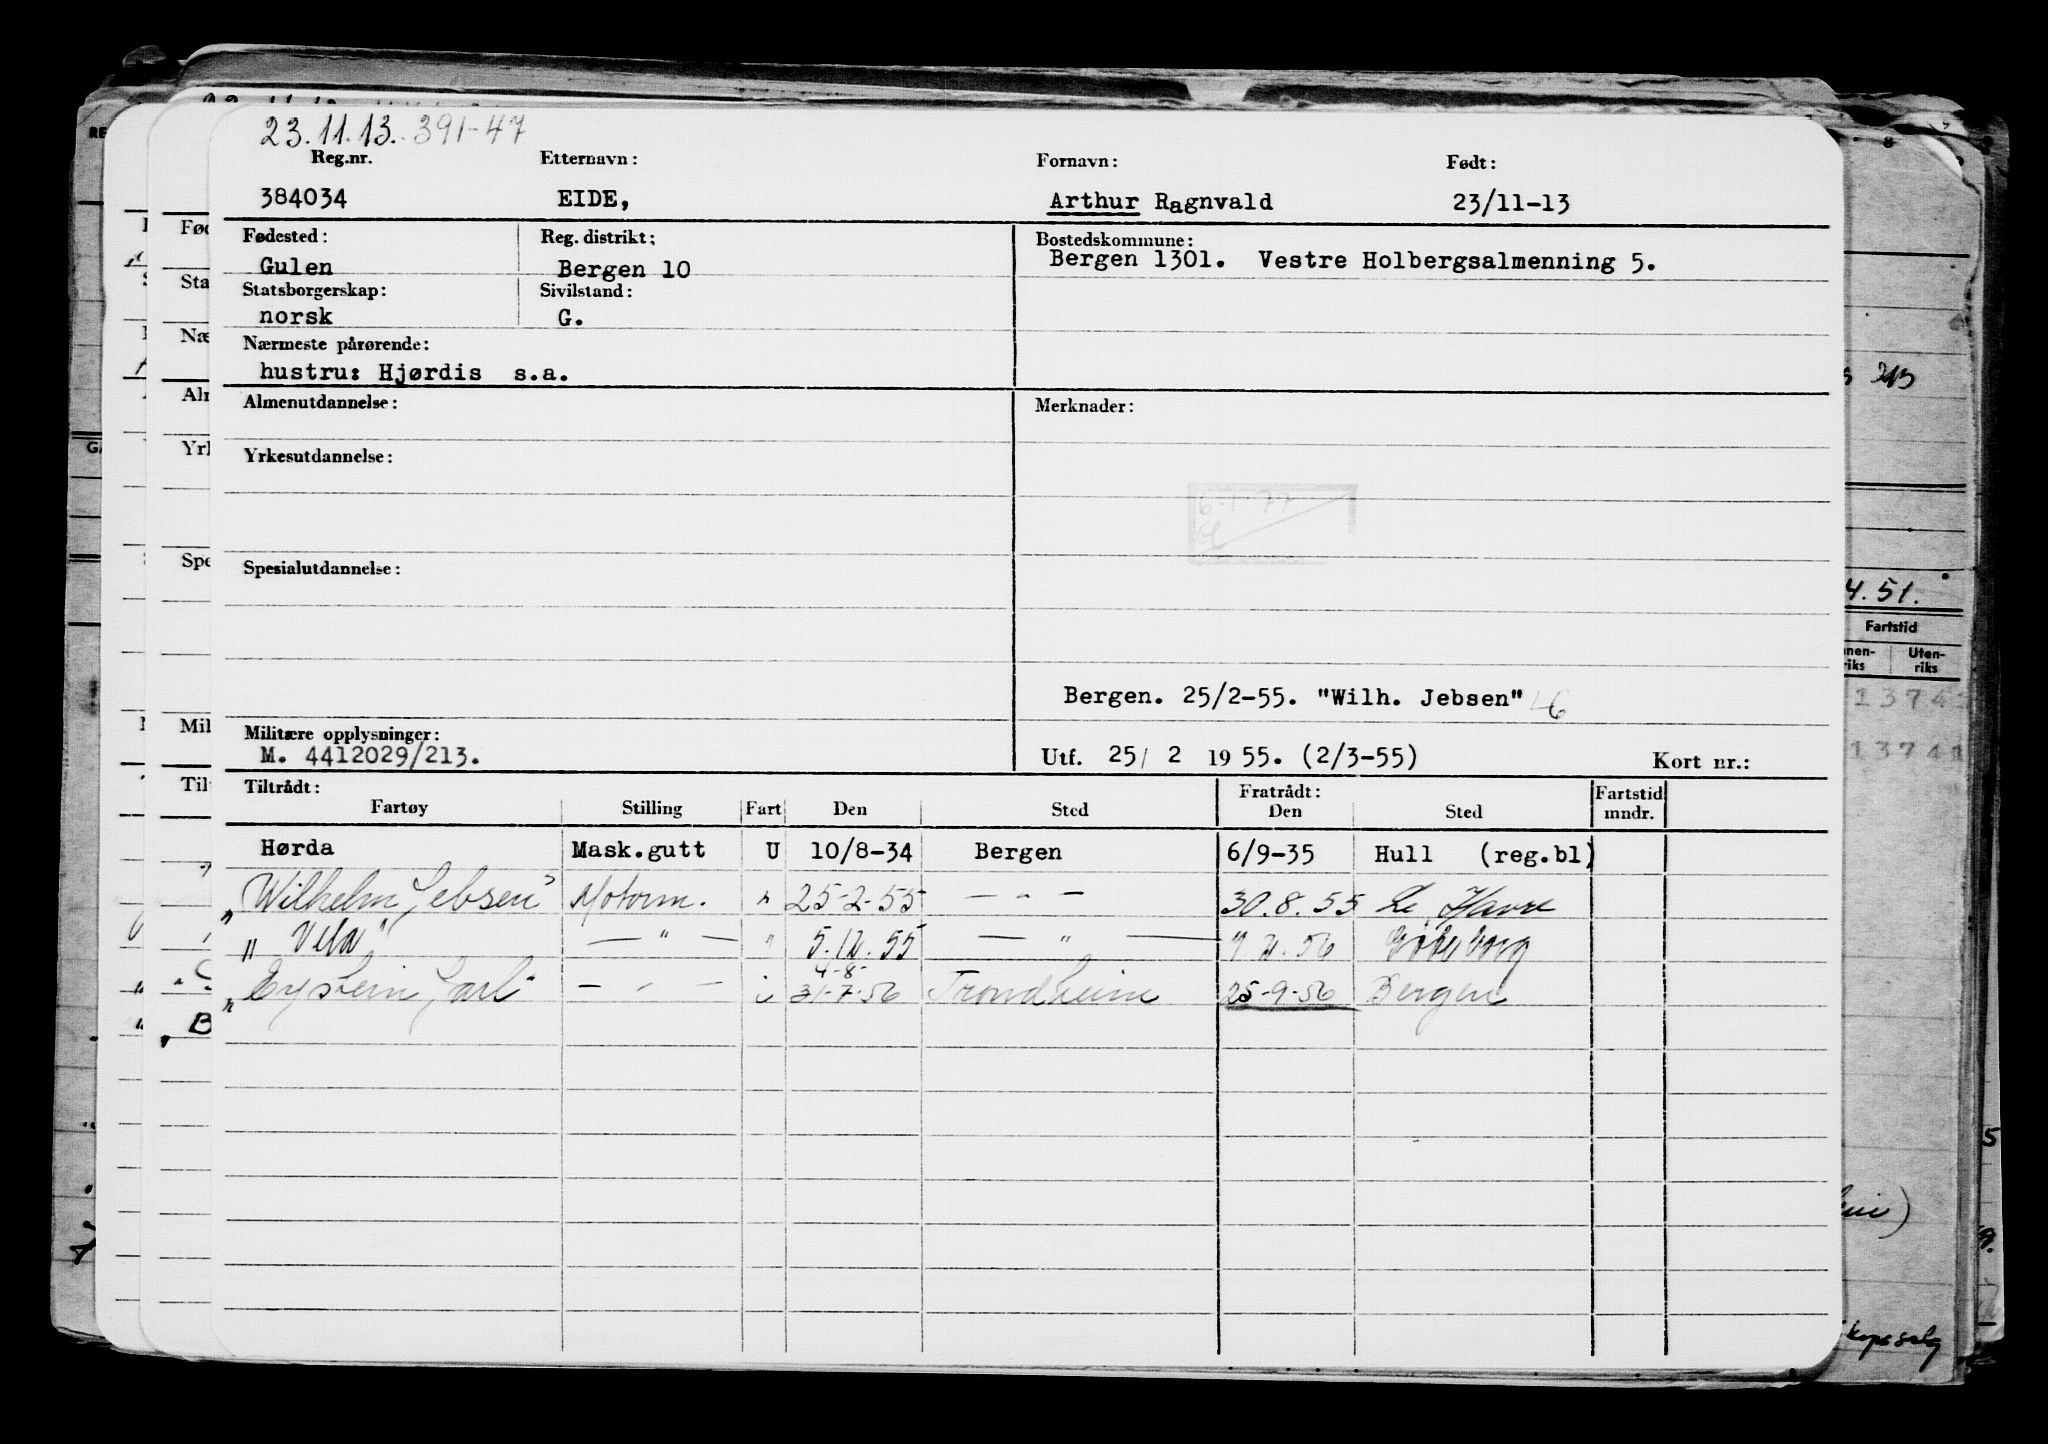 23.11.13. 391-47
Reg.nr. Etternavn: Fornavn: Født:
384034 EIDE, Arthur Ragnvald 23/11-13
Fødested: Reg. distrikt: Bostedskommune:
Gulen Bergen 10 Bergen 1301. Vestre Holbergsalmenning 5.
Statsborgerskap: Sivilstand:
norsk G.
Nærmeste pårørende:
hustru: Hjørdis s.a.
Almenutdannelse: Merknader:
Yrkesutdannelse:
6-1-77
Spesialutdannelse:
Bergen. 25/2-55. "Wilh. Jebsen"
Militære opplysninger:
M. 4412029/213. Utf. 25/ 2 1955. (2/3-55) Kort nr.:
Tiltrådt: Fratrådt: Fartstid
Fartøy Stilling Fart Den Sted Den Sted mndr.
Hørda Mask.gutt U 10/8-34 Bergen 6/9-35 Hull (reg.bl)
"Wilhelm Jebsen" Motorm. " 25-2-55 — " — 30.8.55 Le Havre
"Vela" — " — " 5.12.55 — " — 56 Göteborg
4-8-
"Eystein Jarl" — " — i 31-7-56 Trondheim 25-9-56 Bergen
Fød
Sta
Næ
Alm
Yrk
Spe
Mil
Til
4.51.
Fartstid
Uten-
riks
13741